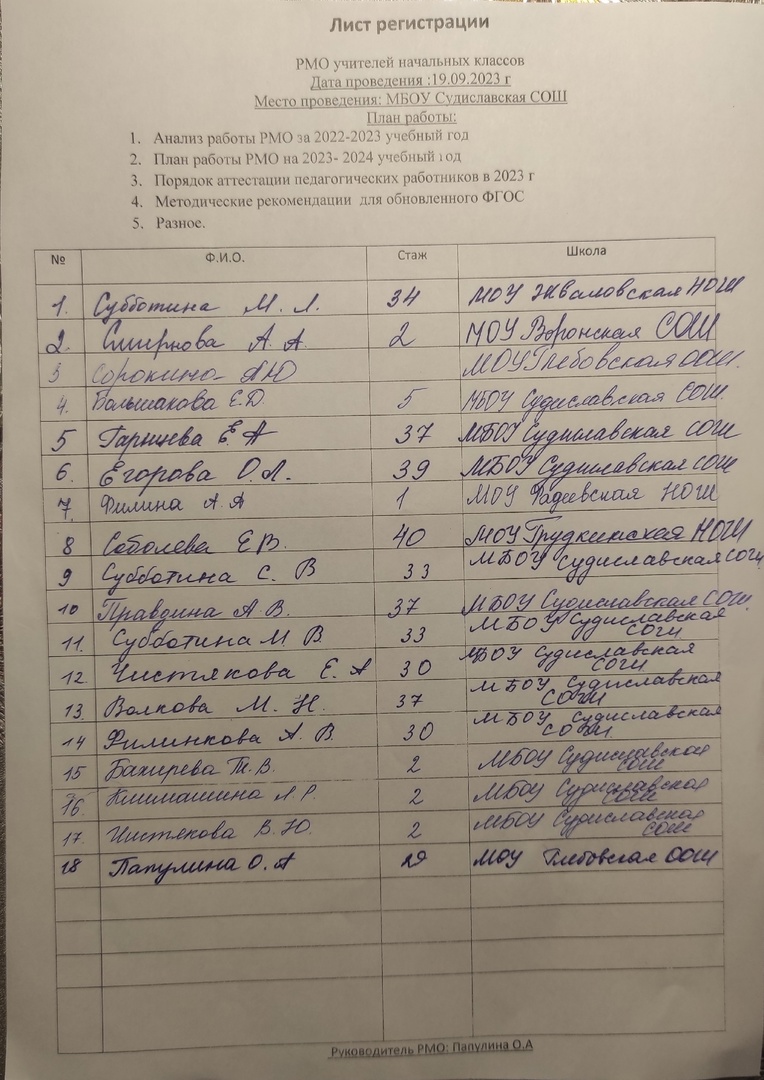 Лист регистрации
РМО учителей начальных классов
Дата проведения :19.09.2023 г
Место проведения: МБОУ Судиславская СОШ
План работы:
1. Анализ работы РМО за 2022-2023 учебный год
2. План работы РМО на 2023- 2024 учебный год
3. Порядок аттестации педагогических работников в 2023 г
4. Методические рекомендации для обновленного ФГОС
5. Разное.
№ Ф.И.О. Стаж Школа
1. Субботина М. Л. 34 МОУ НОШ
2. Смирнова А. А. 2 МОУ Воронская СОШ
3 Сорокина АЮ МОУ Глебовская ООШ.
4. Большакова Е.Д. 5 МБОУ Судиславская СОШ.
5 Е А 37 МБОУ Судиславская СОШ
6. Егорова О.Л. 39 МБОУ Судиславская СОШ
7. Филина А. А 1 МОУ Фадеевская НОШ
8 Соболева ЕВ. 40 МОУ Грудкинская НОШ
9 Субботина С. В 33 МБОУ Судиславская СОШ
10 Правдина А В. 37 МБОУ Судиславская СОШ.
11. Субботина М В. 33 МБОУ Судиславская
СОШ
12. Чистякова Е. А 30 МБОУ Судиславская
СОШ
13. Волкова М. Н. 37 МБОУ Судиславская
СОШ
14 Филинкова А. В. 30 МБОУ Судиславская
СОШ
15 Бахирева Т.В. 2 МБОУ Судиславская
СОШ
16. Климашина Л.Р. 2 МБОУ Судиславская
СОШ
17. Чистякова В.Ю. 2 МБОУ Судиславская
СОШ
18 Папулина О. А 29 МОУ Глебовская ООШ
Руководитель РМО: Папулина О.А